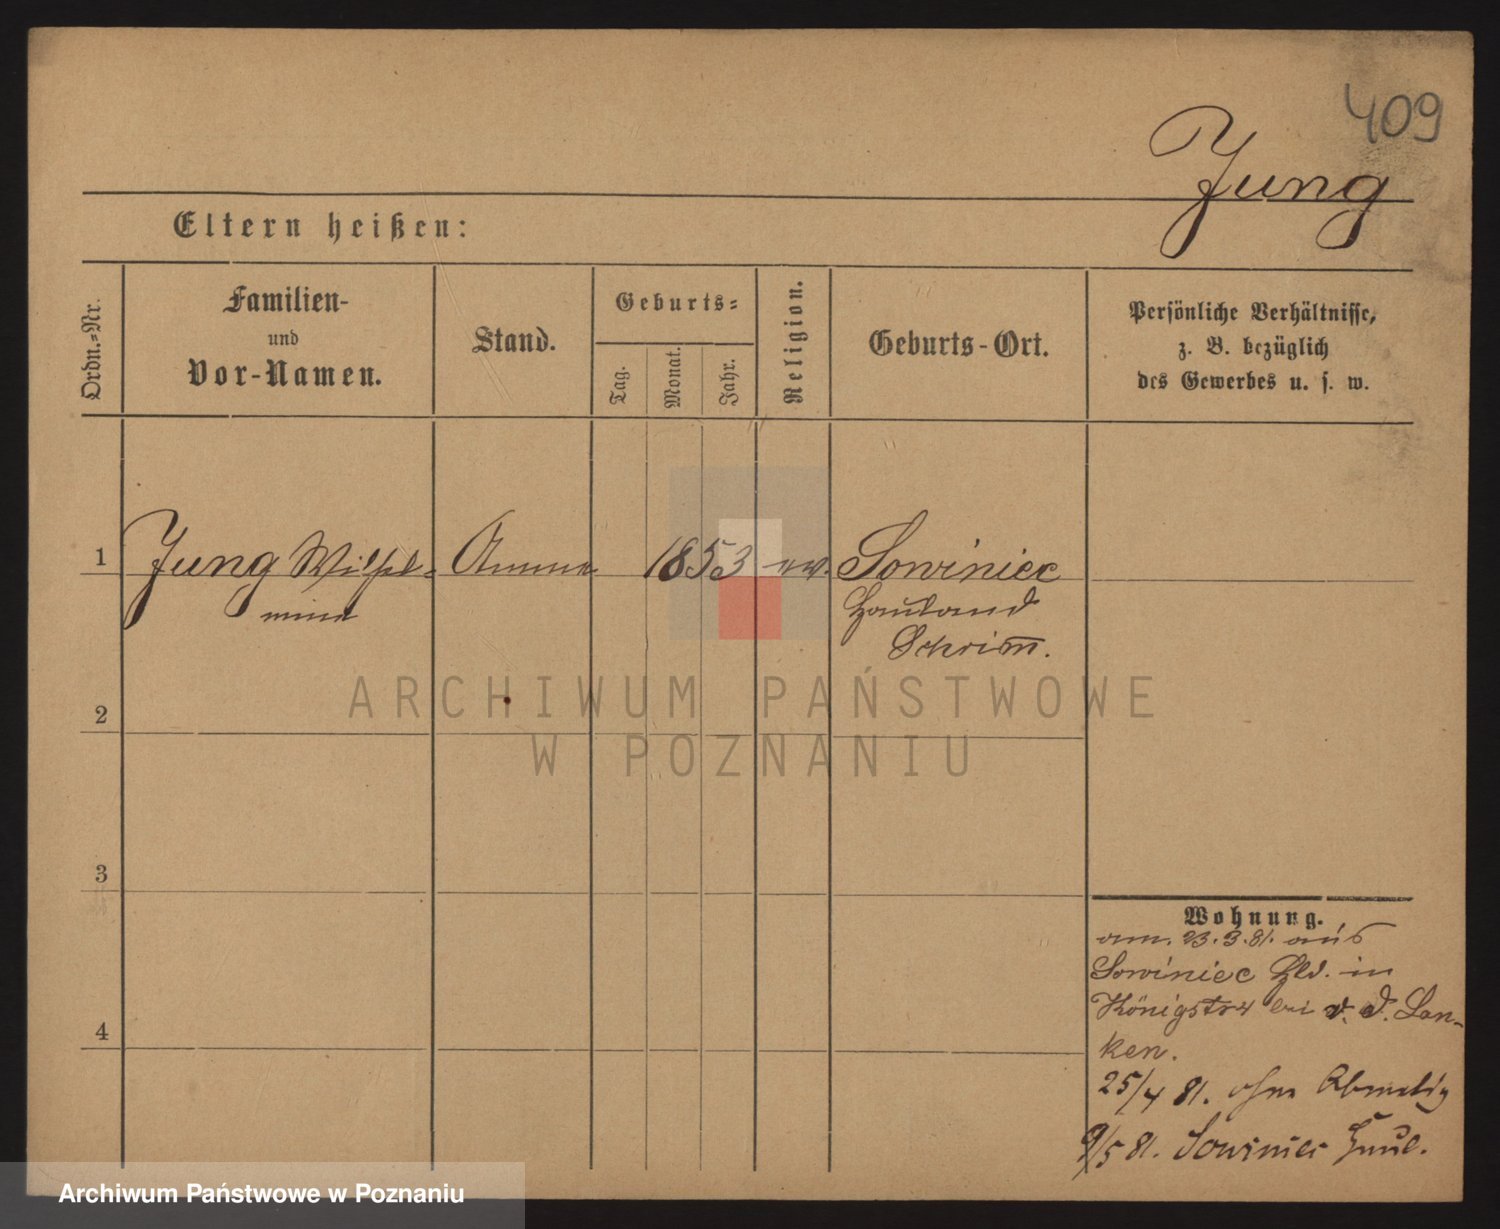 409
Jung
Eltern heißen:
Ordn.-Nr.
Familien-
und
Vor-Namen.
Stand.
Geburts-
Tag.
Monat.
Jahr.
Religion.
Geburts-Ort.
Persönliche Verhältnisse,
z. B. bezüglich
des Gewerbes u. s. w.
1 Jung Wilhel- Amme 1853 ev. Sowiniec
mine Hauland
Schrim̅.
2
3
4
Wohnung.
am. 23.3.81. aus
Sowiniec Hld. in
Königstr 4 bei v. d. Lan-
ken.
25/4 81. ohne Abmeldg
9/5 81. Sowiniec Haul.
ARCHIWUM PAŃSTWOWE
W POZNANIU
Archiwum Państwowe w Poznaniu